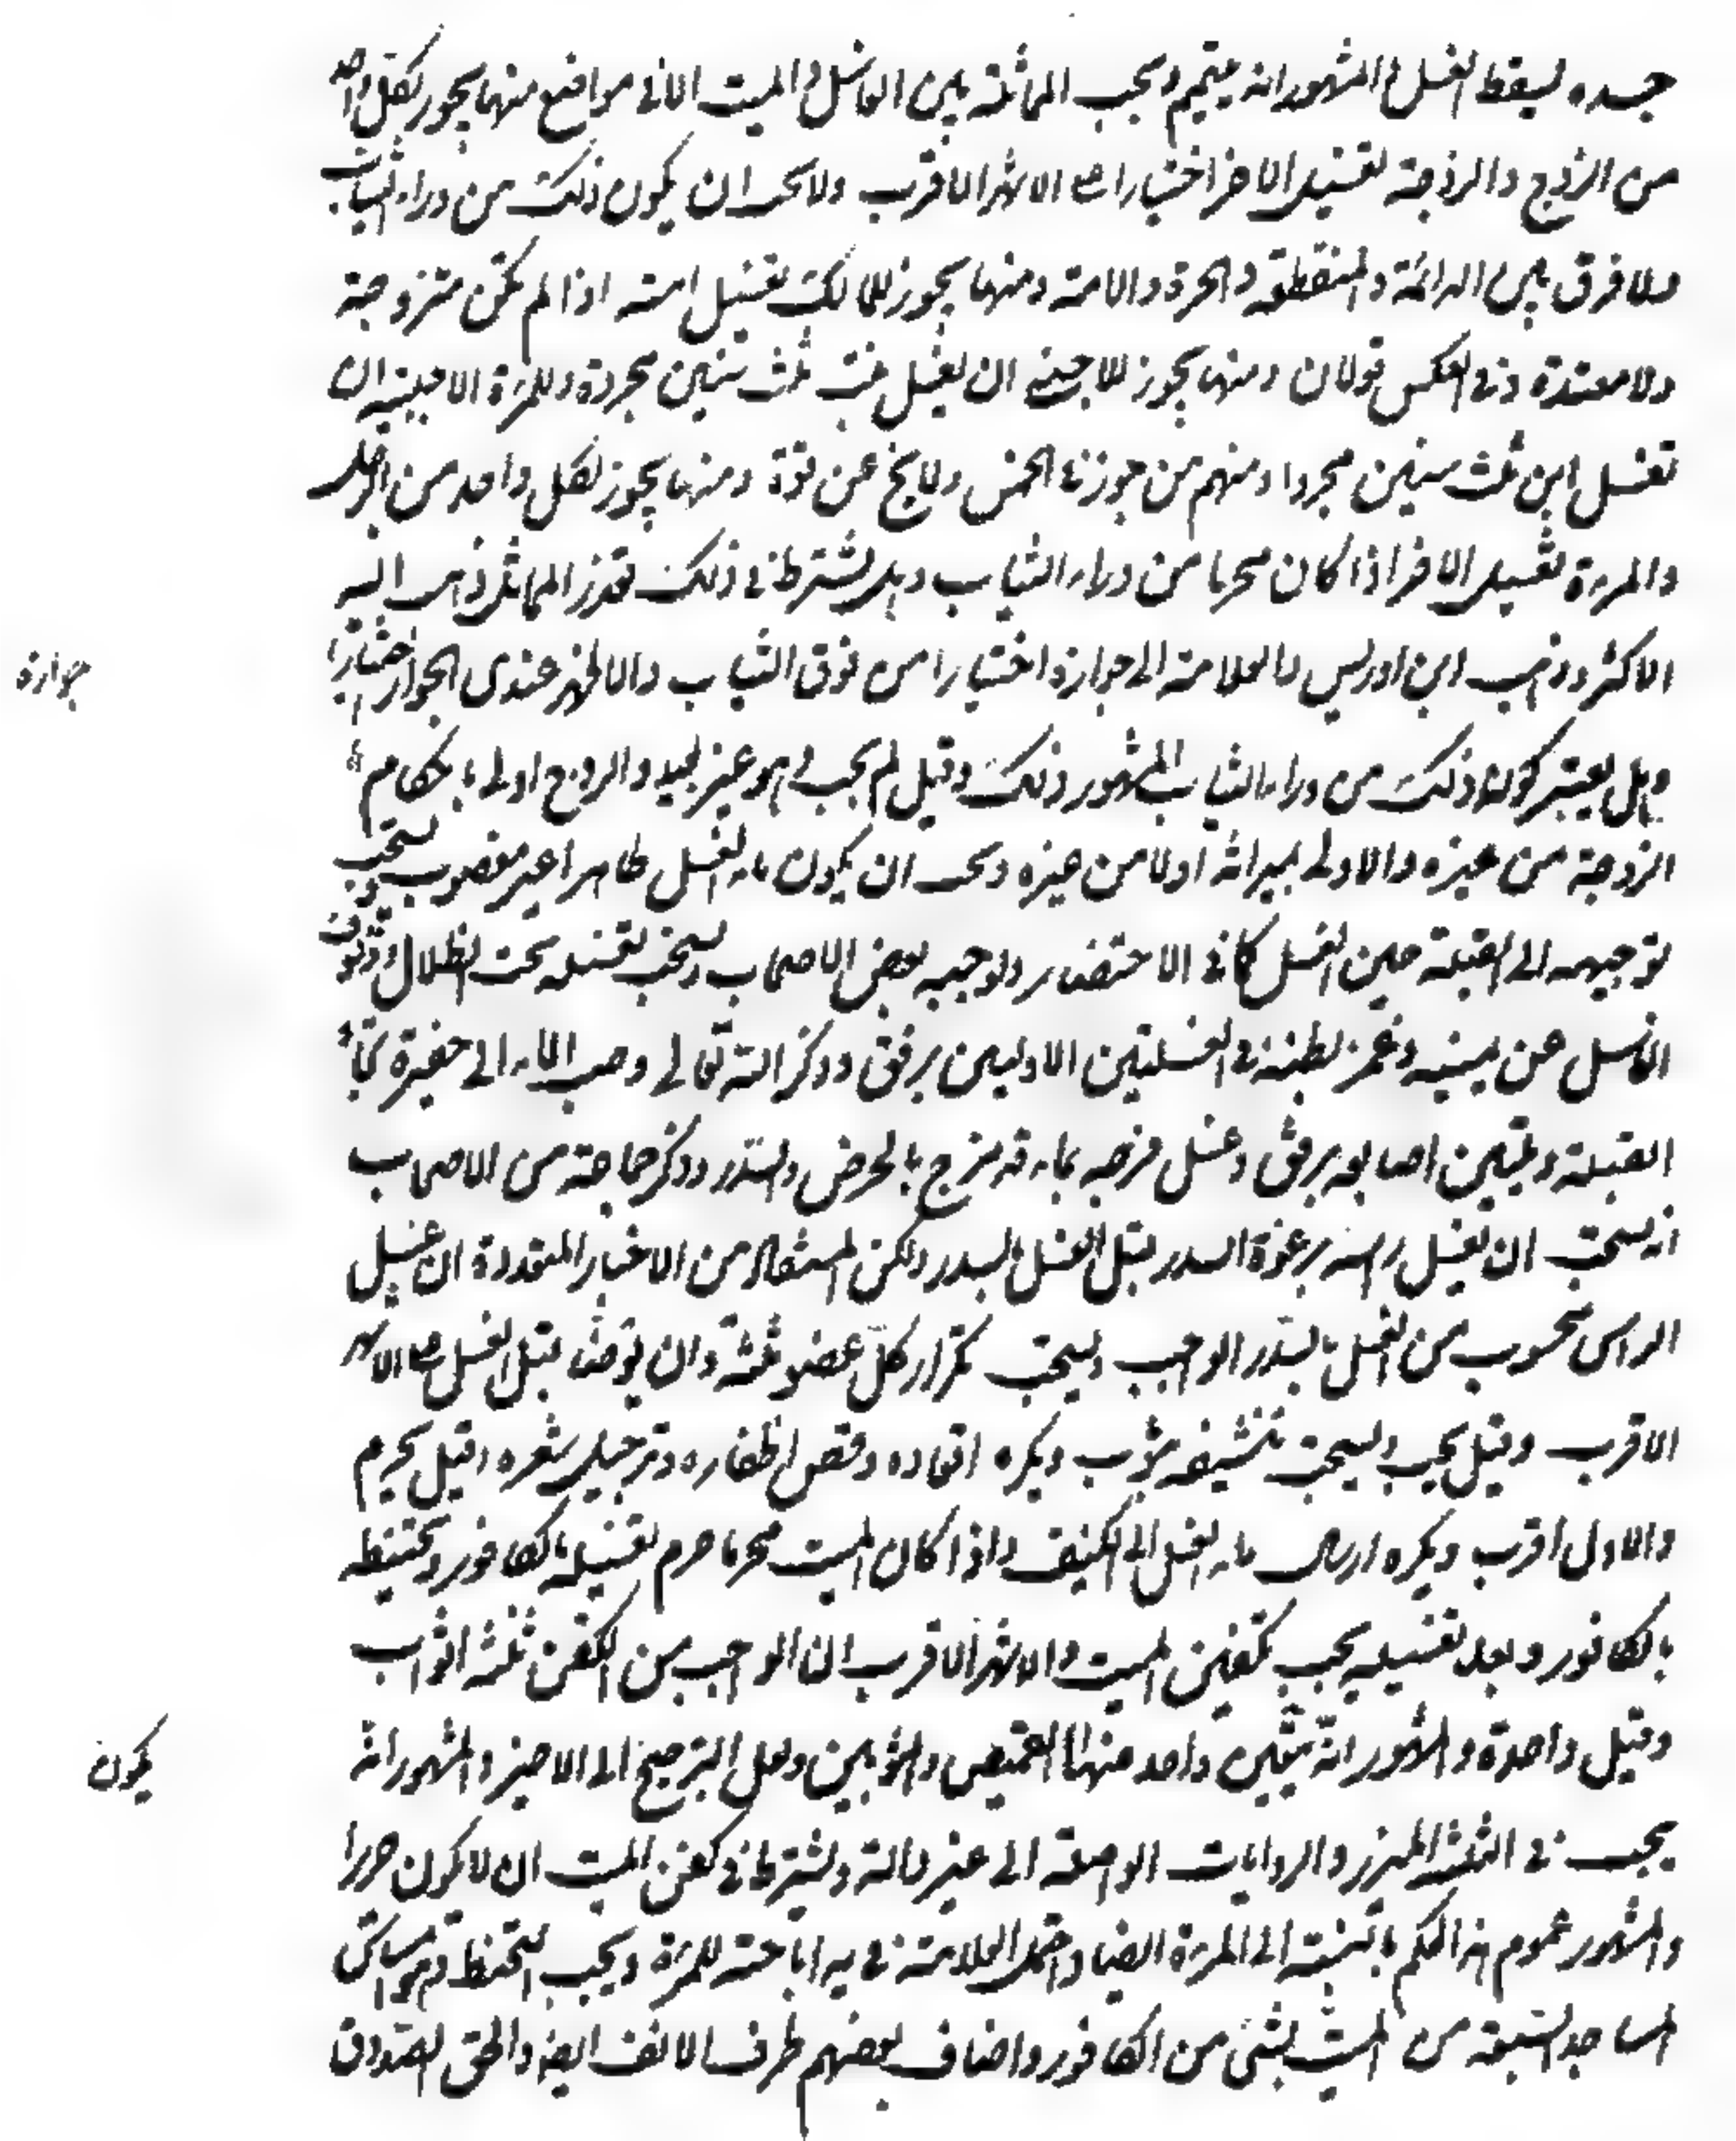 جسده يسقط الغسل والمشهور انه ييمم ويجب المماثلة بين الغاسل والميت الا في مواضع منها يجوز لكل واحد
من الزوج والزوجة تغسيل الاخر اختيارا على الاشهر الاقرب والاحوط ان يكون ذلك من وراء الثياب
ولا فرق بين الدائمة والمنقطعة والحرة والامة ومنها يجوز للمالك تغسيل امته اذا لم تكن متزوجة
ولا معتدة وفي العكس قولان ومنها يجوز للاجنبي ان يغسل بنت ثلث سنين مجردة وللمرءة الاجنبية ان
تغسل ابن ثلث سنين مجردا ومنهم من جوز في الخمس ولا يخ عن قوة ومنها يجوز لكل واحد من الرجل
والمرءة تغسيل الاخر اذا كان محرما من وراء الثياب وهل يشترط في ذلك تعذر المماثل ذهب اليه
الاكثر وذهب ابن ادريس والعلامة الى جوازه اختيارا من فوق الثياب والاظهر عندي الجواز اختيارا
جوازه
وهل يعتبر كون ذلك من وراء الثياب المشهور ذلك وقيل لم يجب وهو غير بعيد والزوج اولى باحكام
الزوجة من غيره والاولى بميراثه اولى من غيره ويجب ان يكون ماء الغسل طاهرا غير مغصوب ويستحب
توجيهه الى القبلة حين الغسل كما في الاحتضار واوجبه بعض الاصحاب ويستحب تغسيله تحت الظلال ووقوف
الغاسل عن يمينه وغمز بطنه في الغسلتين الاوليين برفق وذكر الله تعالى وصب الماء الى حفيرة تجاه
القبلة وتليين اصابعه برفق وغسل فرجه بماء قد مزج بالحرض والسدر وذكر جماعة من الاصحاب
انه يستحب ان يغسل راسه برغوة السدر قبل الغسل بالسدر ولكن المستفاد من الاخبار المتعددة ان غسل
الراس محسوب من الغسل بالسدر الواجب ويستحب تكرار كل عضو ثلثة وان يوضأ قبل الغسل على الاشهر
الاقرب وقيل يجب ويستحب تنشيفه بثوب ويكره اقعاده وقص اظفاره وترجيل شعره وقيل يحرم
والاول اقرب ويكره ارسال ماء الغسل الى الكنيف واذا كان الميت محرما حرم تغسيله بالكافور وتحنيطه
بالكافور وبعد تغسيله يجب تكفين الميت والاشهر الاقرب ان الواجب من الكفن ثلثة اثواب
وقيل واحدة والمشهور انه يتعين واحد منها القميص والثوبين ولعل الترجيح الى الاخير والمشهور انه
يكون
يجب في الثلثة المئزر والروايات الواصلة الى غير دالة ويشترط في كفن الميت ان لا يكون حريرا
والمشهور عموم هذا الحكم بالنسبة الى المرءة ايضا واحتمل العلامة في يه اباحته للمرءة ويجب التحنط وهو امساس
المساجد السبعة من الميت بشئ من الكافور واضاف بعضهم طرف الانف ايضا والحق الصدوق